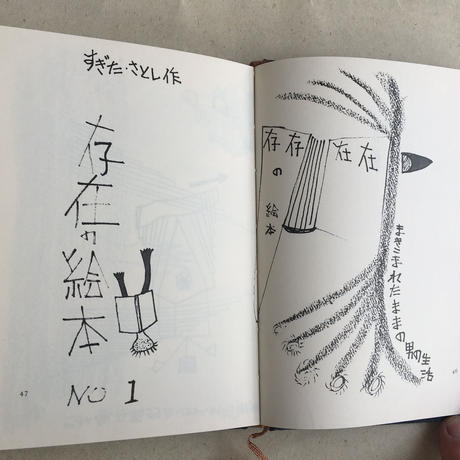 すぎた・さとし作
存在の絵本
NO 1
47
存存在在
の絵本
まきこまれたままの男の生活